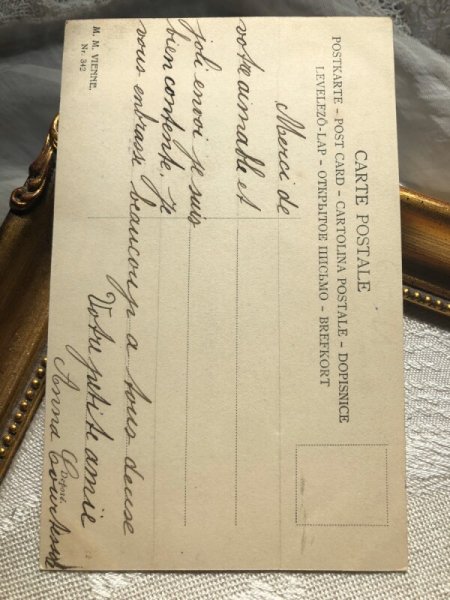 CARTE POSTALE
POSTKARTE – POST CARD – CARTOLINA POSTALE – DOPISNICE
LEVELEZÖ-LAP – ОТКРЫТОЕ ПИСЬМО – BREFKORT
Merci de
votre aimable et
joli envoi je suis
bien contente. Je
vous embrasse beaucoup a tous deux
Votre petite amie
Anna
Déposé.
M. M. VIENNE.
Nr. 342